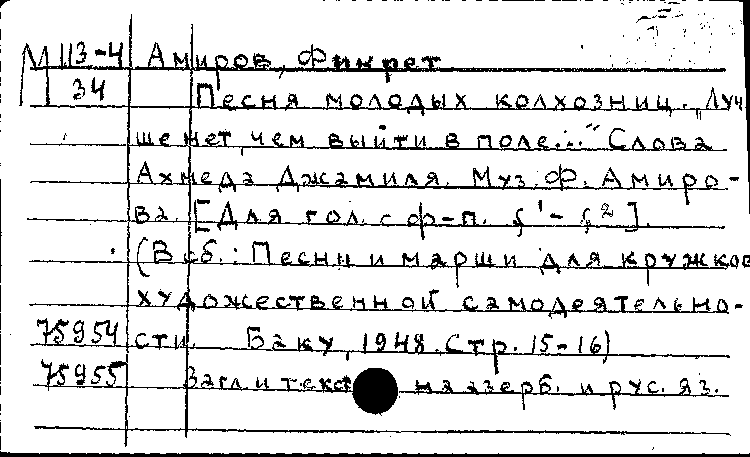 М 113-4 Амиров, Фикрет
34 Песня молодых колхозниц. „Луч
ше нет, чем выйти в поле..." Слова
Ахмеда Джамиля. Муз. Ф. Амиро-
ва. [Для гол. с ф-п. f¹-g²].
(В сб.: Песни и марши для кружков
художественной самодеятельно-
75954 сти. Баку, 1948. Стр. 15-16)
75955 Загл и текст на азерб. и рус. яз.